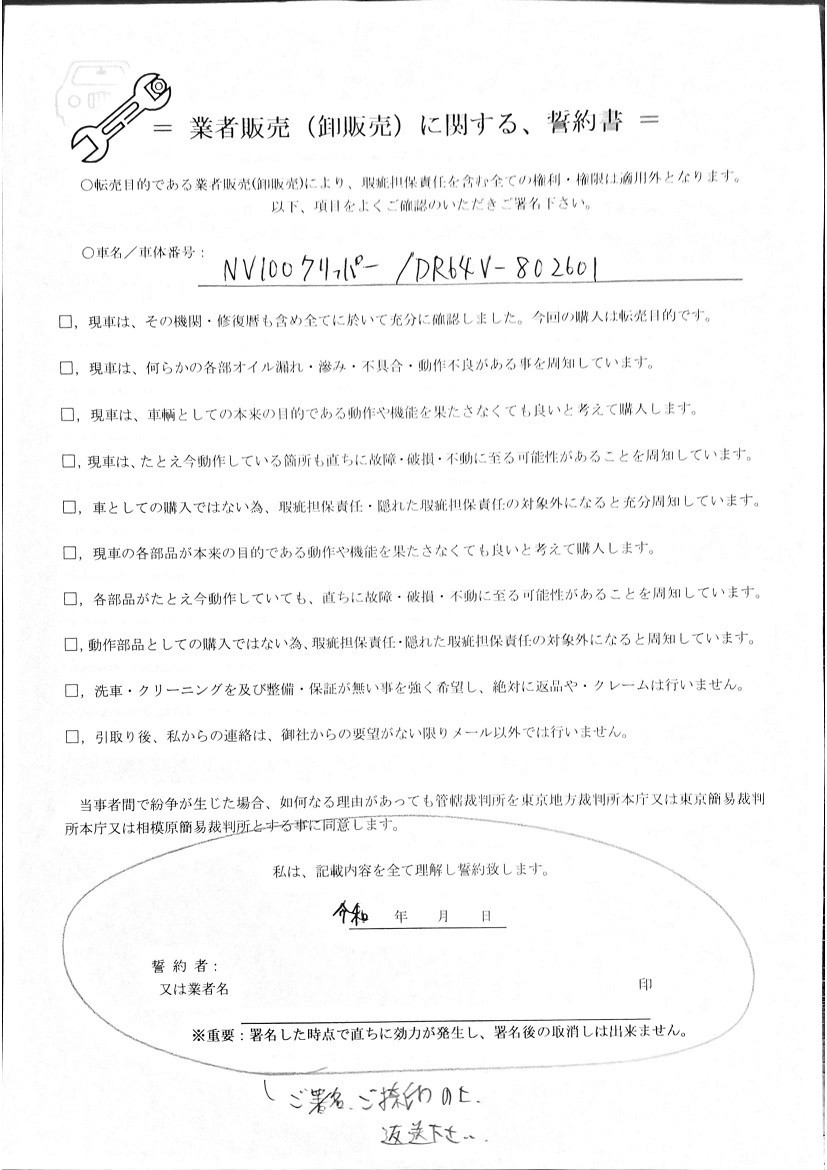 = 業者販売（卸販売）に関する、誓約書 =
○転売目的である業者販売(卸販売)により、瑕疵担保責任を含む全ての権利・権限は適用外となります。
以下、項目をよくご確認のいただきご署名下さい。
○車名／車体番号：
NV100クリッパー /DR64V-802601
□，現車は、その機関・修復暦も含め全てに於いて充分に確認しました。今回の購入は転売目的です。
□，現車は、何らかの各部オイル漏れ・滲み・不具合・動作不良がある事を周知しています。
□，現車は、車輌としての本来の目的である動作や機能を果たさなくても良いと考えて購入します。
□，現車は、たとえ今動作している箇所も直ちに故障・破損・不動に至る可能性があることを周知しています。
□，車としての購入ではない為、瑕疵担保責任・隠れた瑕疵担保責任の対象外になると充分周知しています。
□，現車の各部品が本来の目的である動作や機能を果たさなくても良いと考えて購入します。
□，各部品がたとえ今動作していても、直ちに故障・破損・不動に至る可能性があることを周知しています。
□，動作部品としての購入ではない為、瑕疵担保責任・隠れた瑕疵担保責任の対象外になると周知しています。
□，洗車・クリーニングを及び整備・保証が無い事を強く希望し、絶対に返品や・クレームは行いません。
□，引取り後、私からの連絡は、御社からの要望がない限りメール以外では行いません。
当事者間で紛争が生じた場合、如何なる理由があっても管轄裁判所を東京地方裁判所本庁又は東京簡易裁判
所本庁又は相模原簡易裁判所とする事に同意します。
私は、記載内容を全て理解し誓約致します。
令和 年 月 日
誓 約 者：
又は業者名 印
※重要：署名した時点で直ちに効力が発生し、署名後の取消しは出来ません。
ご署名、ご捺印の上、
返送下さい。